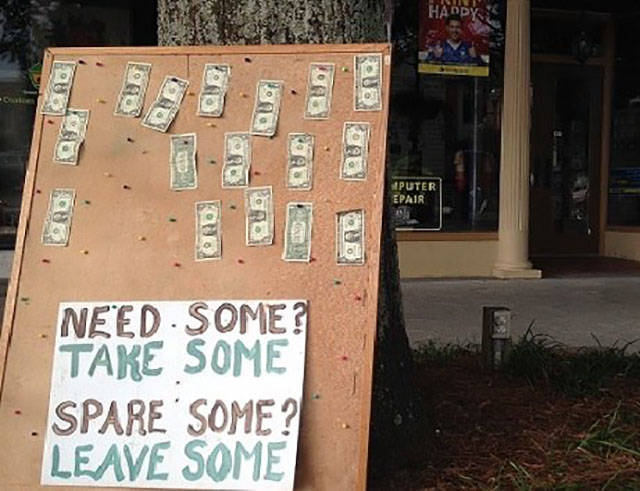 HAPPY
COMPUTER
REPAIR
NEED SOME?
TAKE SOME
SPARE SOME?
LEAVE SOME